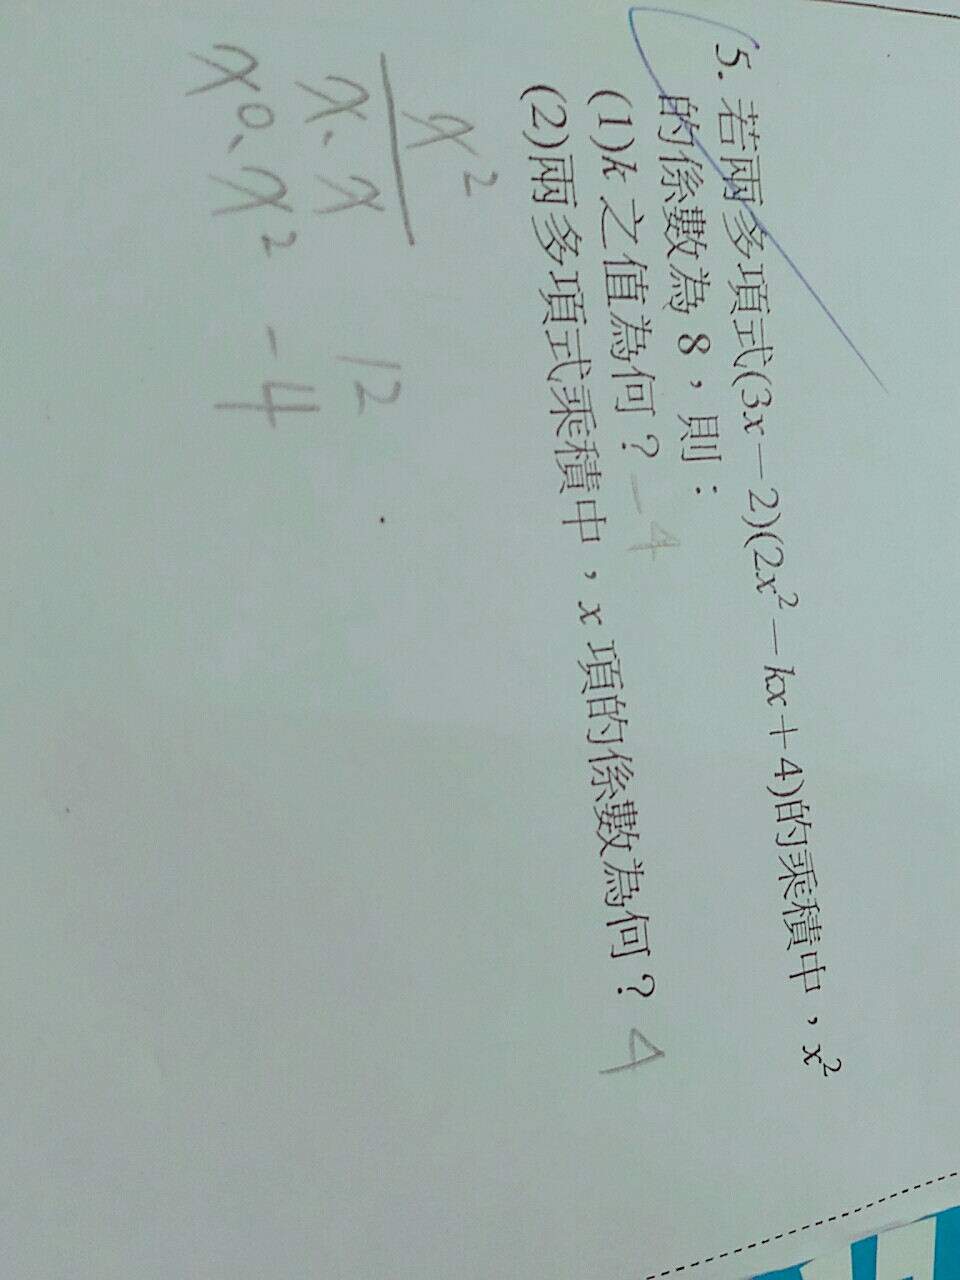 5. 若兩多項式(3x－2)(2x²－kx＋4)的乘積中，x²
的係數為 8，則：
(1)k 之值為何？ －4
(2)兩多項式乘積中，x 項的係數為何？ 4
x²
x、x 12
x⁰、x² －4